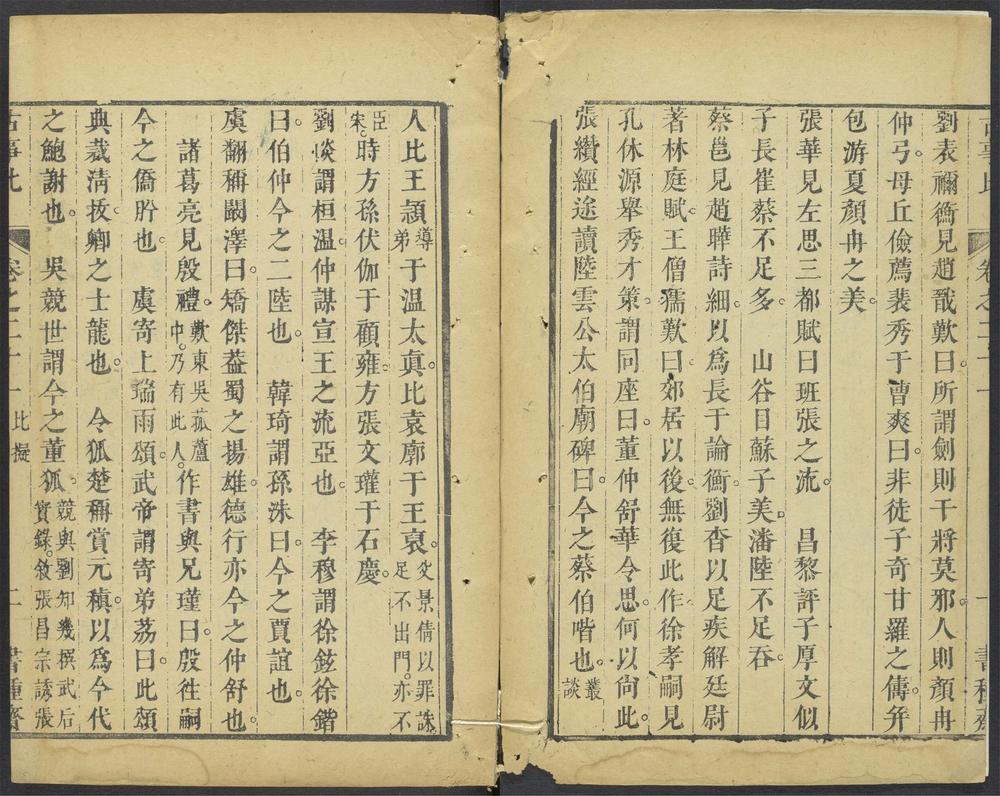 劉表禰衡見趙戩歎曰所謂劍則干將莫邪人則顏冉
仲弓母丘儉薦裴秀于曹爽曰非徒子奇甘羅之儔
包游夏顏冉之美
張華見左思三都賦曰班張之流 昌黎評子厚文似
子長崔蔡不足多 山谷目蘇子美潘陸不足吞
蔡邕見趙曄詩細以爲長于論衡劉杳以足疾解廷尉
著林庭賦王僧孺歎曰郊居以後無復此作徐孝嗣見
孔休源舉秀才策謂同座曰董仲舒華令思何以尙此
張纘經途讀陸雲公太伯廟碑曰今之蔡伯喈也叢談
人比王頴導弟于温太眞比袁廓于王裒父景倩以罪誅足不出門亦不
臣宋時方孫伏伽于顧雍方張文瓘于石慶
劉惔謂桓温仲謀宣王之流亞也 李穆謂徐鉉徐鍇
曰伯仲今之二陸也 韓琦謂孫洙曰今之賈誼也
虞翻稱闞澤曰矯傑葢蜀之揚雄德行亦今之仲舒也
諸葛亮見殷禮歎東吳菰蘆中乃有此人作書與兄瑾曰殷徃嗣
今之僑肸也 虞寄上瑞雨頌武帝謂寄弟荔曰此頌
典裁淸拔卿之士龍也 令狐楚稱賞元稹以爲今代
之鮑謝也 吳競世謂今之董狐競與劉知幾撰武后實錄敘張昌宗誘張
卷之二十一 比擬 二